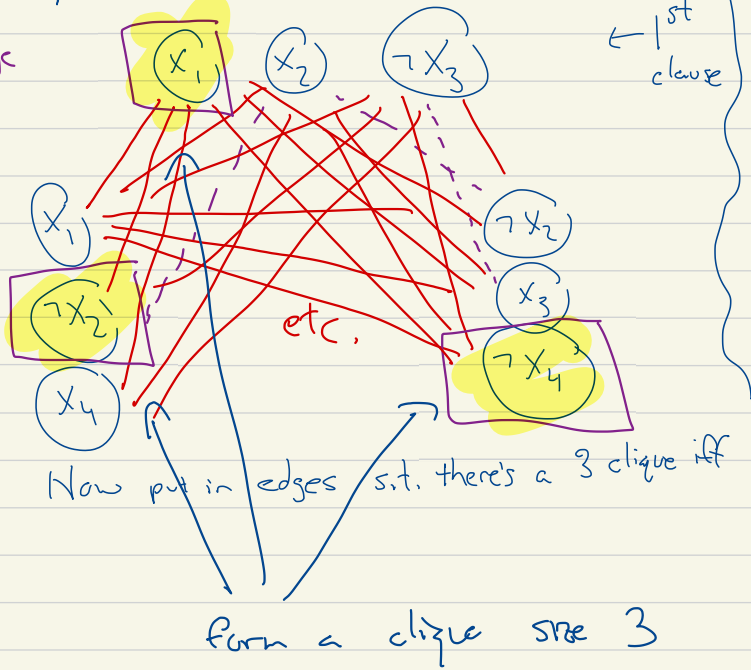 X₁ X₂ ¬X₃ ← 1st
clause
X₁ ¬X₂
¬X₂ X₃
etc. ¬X₄
X₄
Now put in edges s.t. there's a 3 clique iff
form a clique size 3